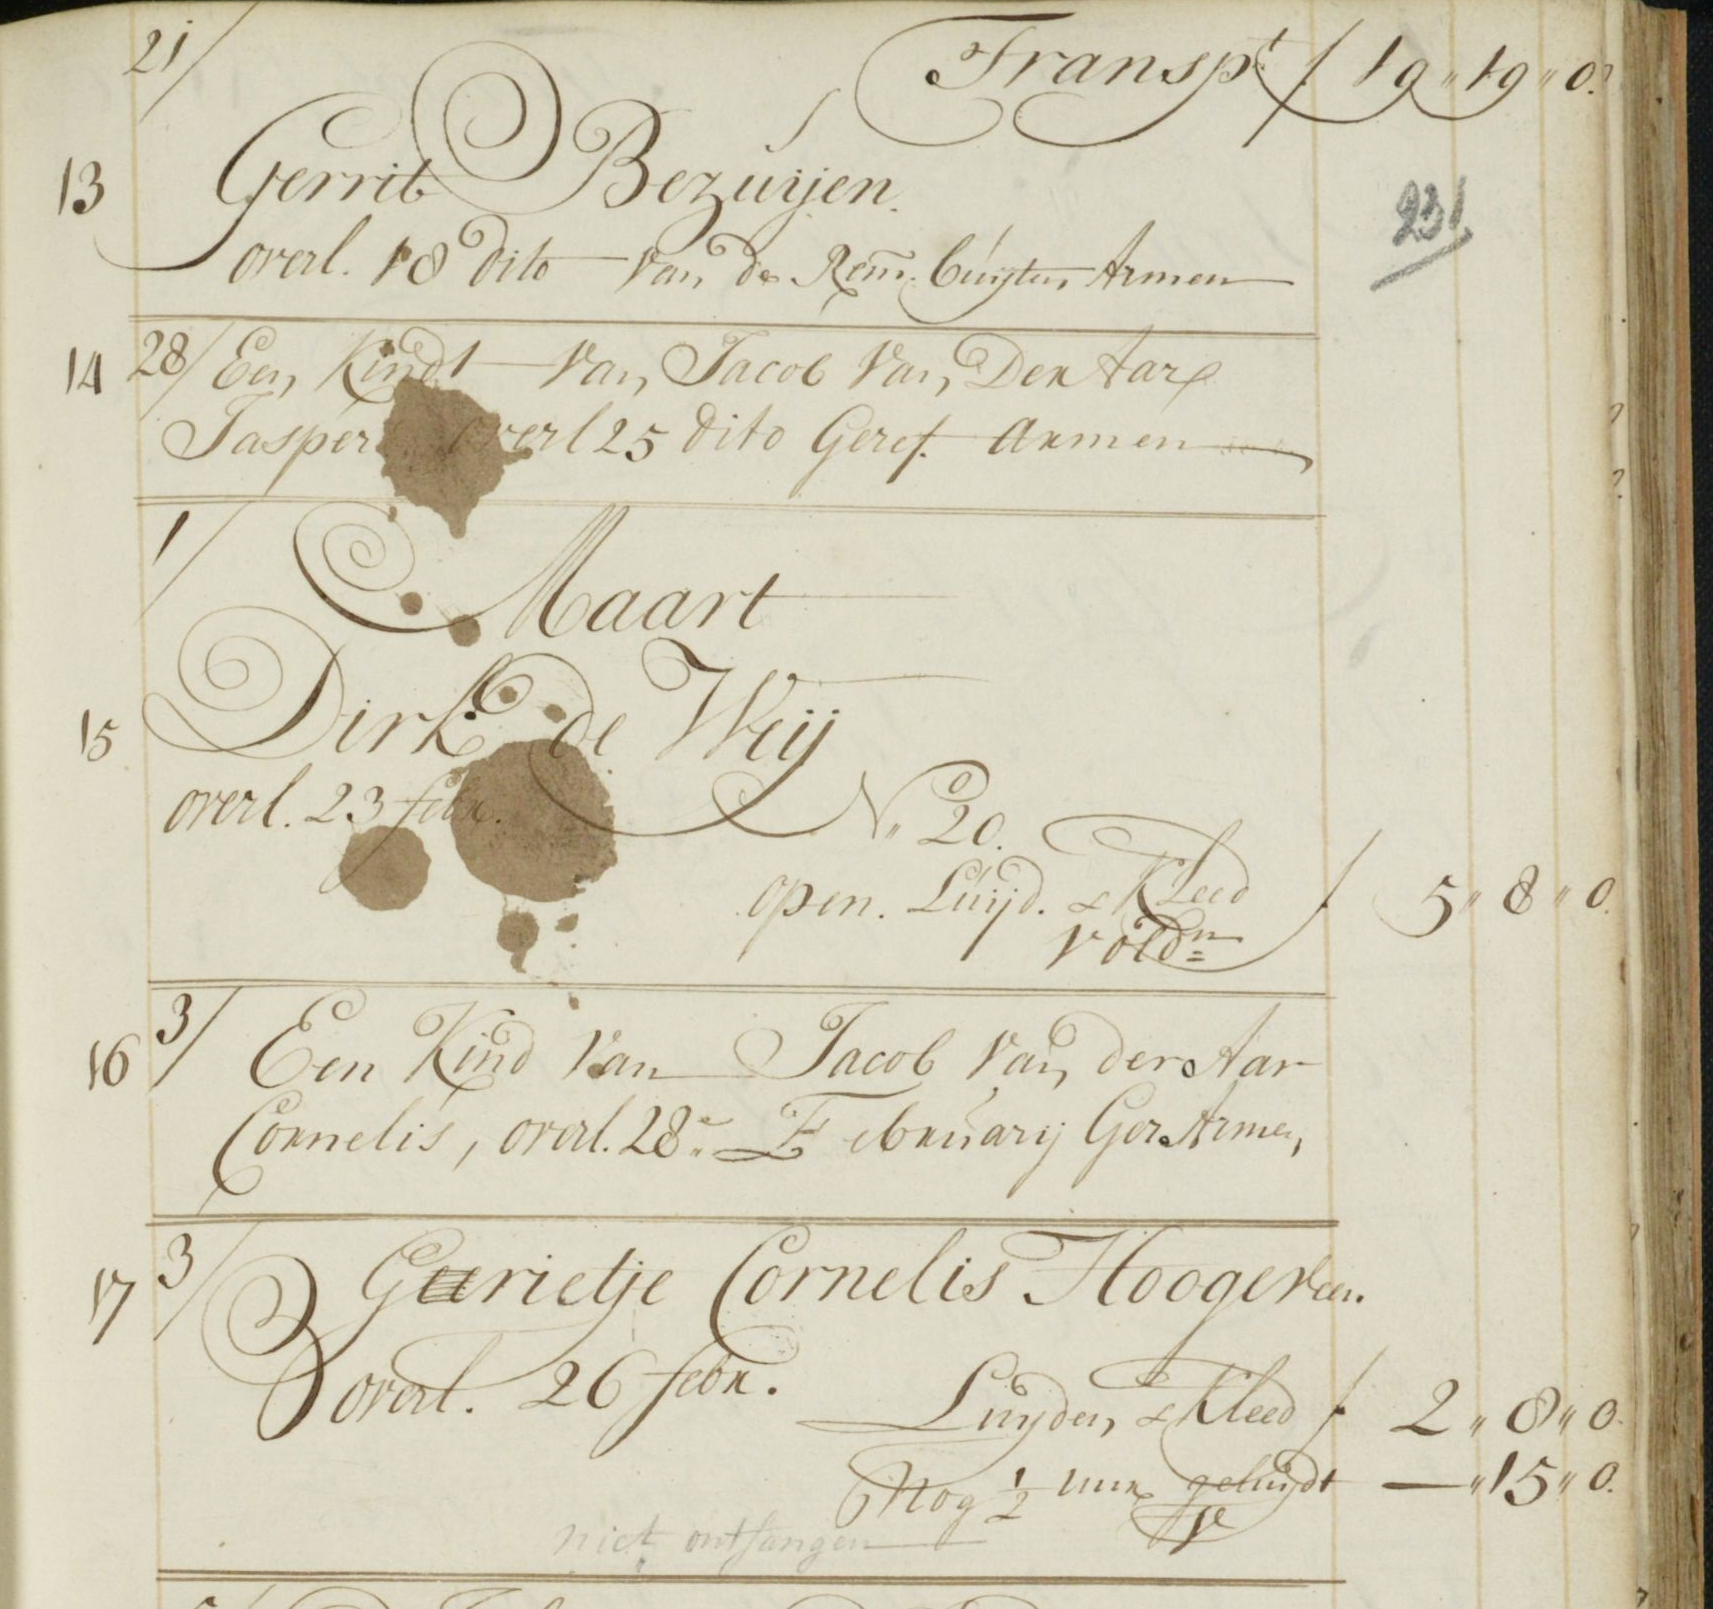 21/ Transpt ƒ 19 " 19 " 0.
13 Gerrit Bezuijen.
231
overl. 18 dito van de Rem. buijten Armen
14 28/ Een Kindt van Jacob van Der Aar
Jasper overl 25 dito Geref. Armen
1/ Maart
15 Dirk de Weij
overl. 23 febr. No. 20.
open. Luijd. & Kleed ƒ 5 " 8 " 0.
voldn
16 3/ Een Kind van Jacob van der Aar
Cornelis, overl. 28e February Ger Armen
17 3/ Gerrietje Cornelis Hoogeveen.
overl. 26 febr. Luyden & Kleed ƒ 2 " 8 " 0.
Nog ½ uur geluijdt — " 15 " 0.
V
niet ontfangen